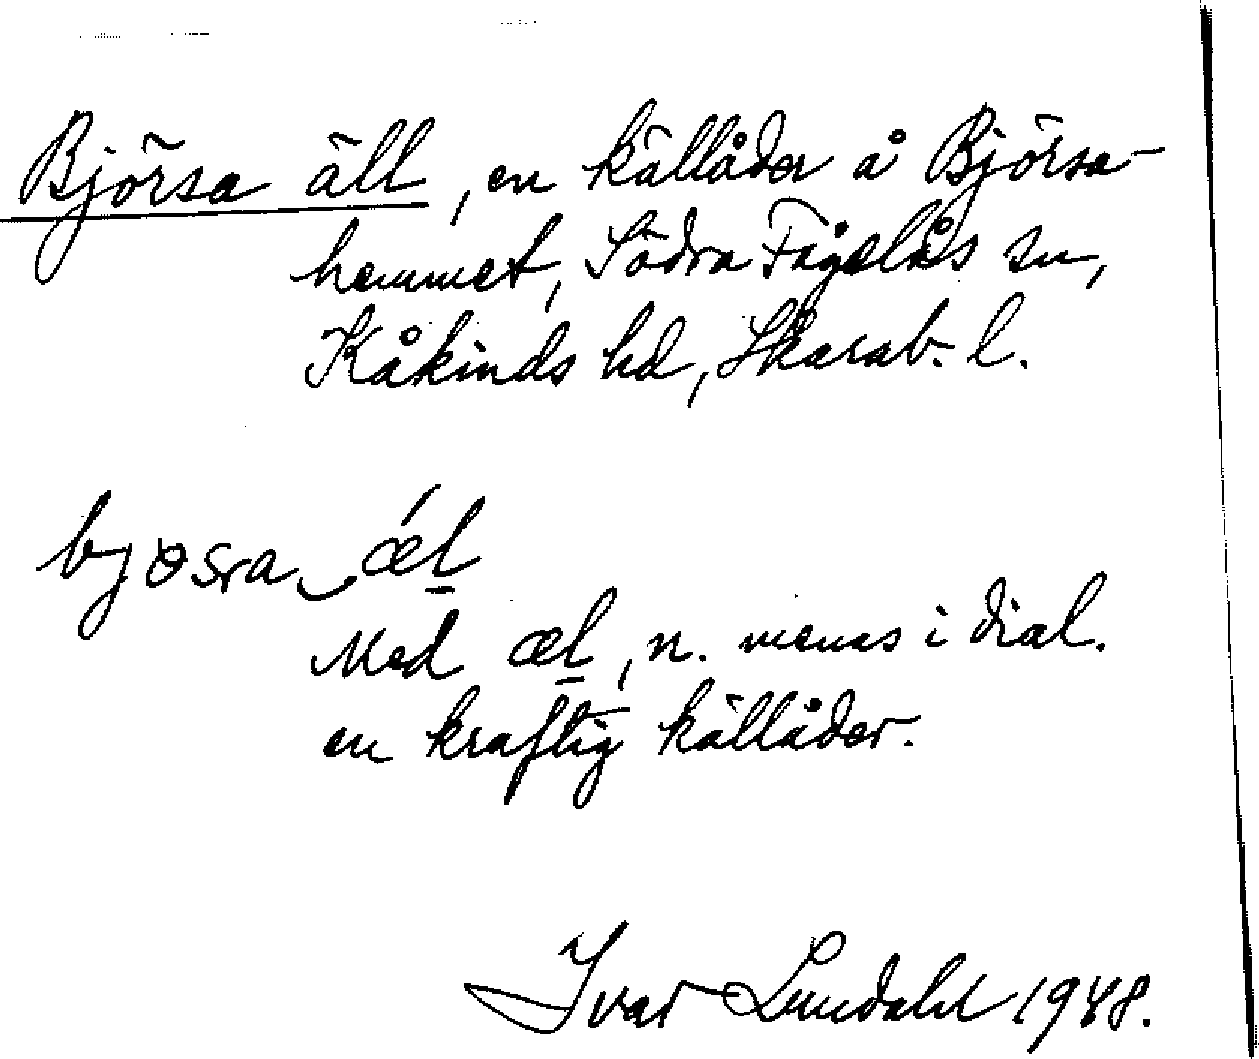 Björsa äll, en källåder å Björsa-
hemmet, Södra Fågelås sn,
Kåkinds hd, Skarab. l.
bjɵsra‿ǽl̲
Med æl̲, n. menas i dial.
en kraftig källåder.
Ivar Lundahl 1948.